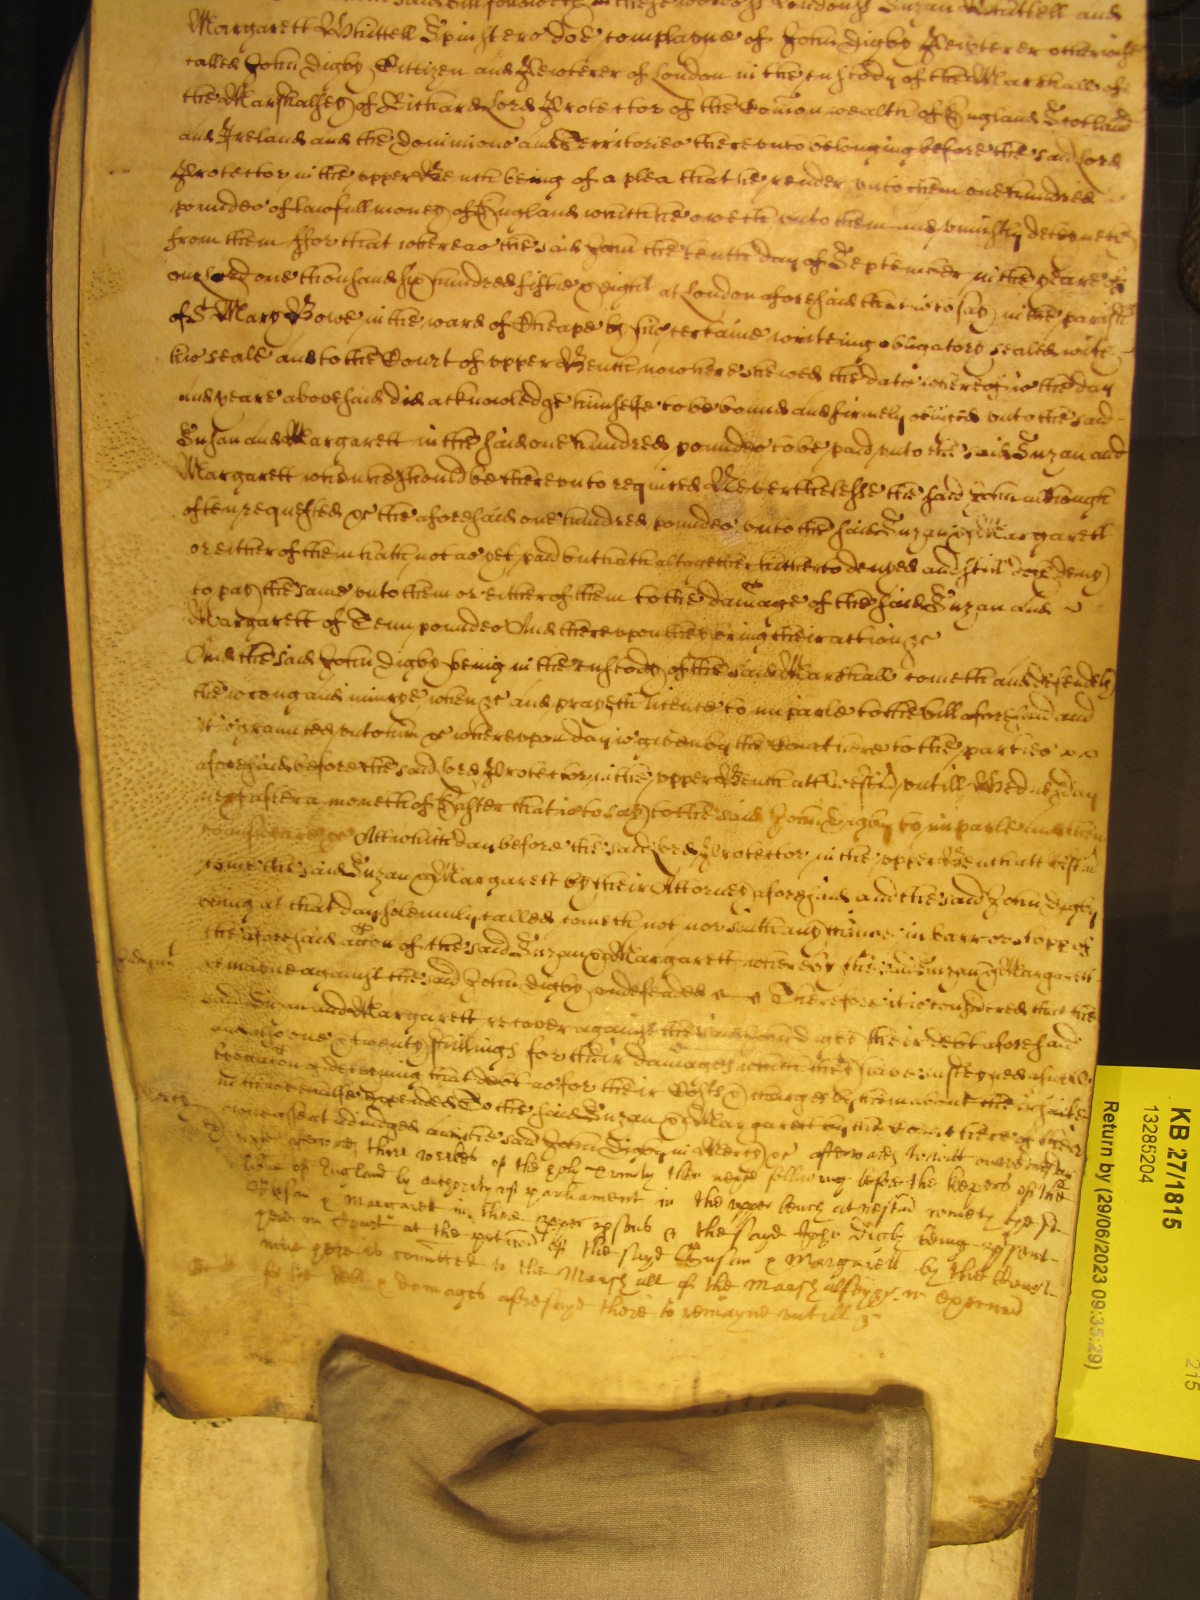 said bill followeth in these words London ss Suzan Whittell and
Margarett Whittell Spinsters doe complayne of John Digby Pewterer otherwise
called John Digby Cittizen and Pewterer of London in the custody of the Marshall of
the Marshalsey of Richard Lord Protector of the Com̄onwealth of England Scotland
and Ireland and the dominions and Territories thereunto belonging before the said Lord
Protector in the upper Bench being of a plea that he render unto them one hundred
poundes of lawfull money of England which he oweth unto them and uniustly deteyneth
from them ffor that whereas the said John the tenth day of September in the yeare of
our Lord one thousand six hundred fiftie & eight at London aforesaid that is to say in the parish
of St Mary Bowe in the ward of Cheape by his certaine writeing obligatory sealed with
his seale and to the Court of upper Bench now here shewed the date whereof is the day
and yeare abovesaid did acknowledge himselfe to be bound and firmely obliged unto the said
Suzan and Margarett in the said one hundred poundes to be paid unto the said Suzan and
Margarett when he should be thereunto required Neverthelesse the said John although
often requested &c the aforesaid one hundred poundes unto the said Suzan & Margarett
or either of them hath not as yet paid but hath altogether hitherto denyed and still doth deny
to pay the same unto them or either of them to the damage of the said Suzan and
Margarett of Tenn poundes And thereupon they bring their action &c
And the said John Digby being in the custody of the said Marshall cometh and defendeth
the wrong and iniurye when &c and prayeth licence to imparle to the bill aforesaid and
it is graunted unto him &c whereupon day is given by the Court here to the parties
aforesaid before the said Lord Protector in the upper Bench att Westm̄ untill Wednesday
next after a moneth of Easter that is to say to the said John Digby to imparle and then
to &c Att which day before the said Lord Protector in the upper Bench att Westm̄
come the said Suzan & Margarett by their Attorney aforesaid and the said John Digby
being at that day solemnly called cometh not nor saith any thinge in barr or stopp of
the aforesaid acc̄on of the said Suzan & Margarett whereby the said Suzan & Margarett
remayne against the said John Digby undefended Therefore it is considered that the
said Suzan and Margarett recover against the said John Digby their debt aforesaid
and also one & twenty shillings for their damages which they have susteyned aswell
by occac̄on of deteining that debt as for their Costs & charges by them about their suite
in this behalfe expended To the said Suzan & Margarett by the Court here of their
owne assent adiudged and the said John Digby in Mercy &c afterwards
three weekes of the holy Trinity then next following before the keepers of the
libertie of England by authority of parliament in the upper bench at Westm̄ come the
Susan & Margaret in there proper ̄psons & the sayd John Digby being ̄psent
here in Court at the peticōn of the sayd Susan & Margarett by the Court
now here is com̄itted to the Marshall of the Marshalsey in execucōn
for the debt & damages aforesayd there to remayne untill &c